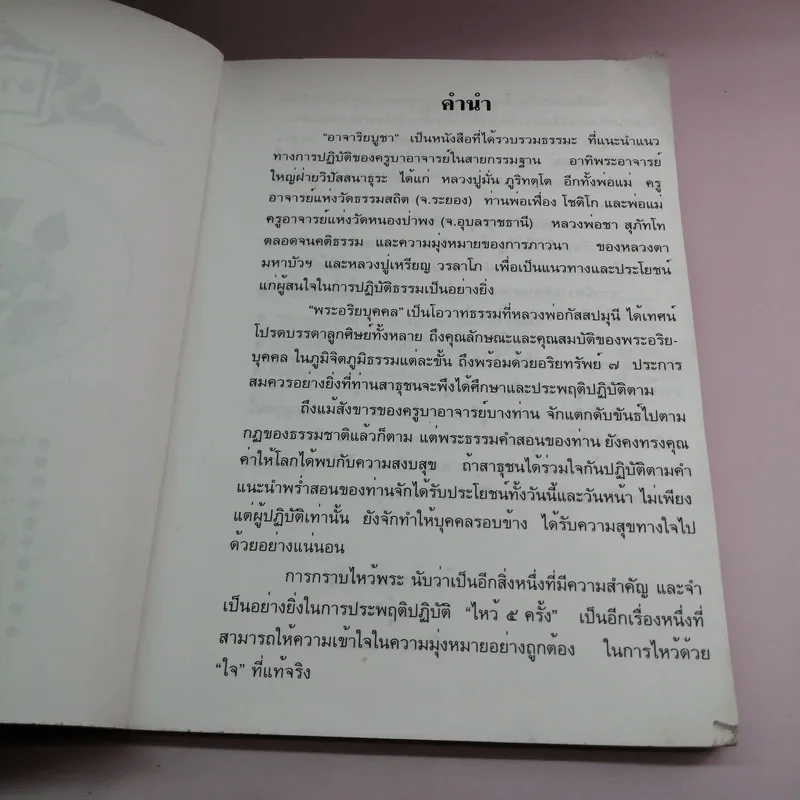 คำนำ
"อาจาริยบูชา" เป็นหนังสือที่ได้รวบรวมธรรมะ ที่แนะนำแนว
ทางการปฏิบัติของครูบาอาจารย์ในสายกรรมฐาน อาทิพระอาจารย์
ใหญ่ฝ่ายวิปัสสนาธุระ ได้แก่ หลวงปู่มั่น ภูริทตฺโต อีกทั้งพ่อแม่ ครู
อาจารย์แห่งวัดธรรมสถิต (จ.ระยอง) ท่านพ่อเฟื่อง โชติโก และพ่อแม่
ครูอาจารย์แห่งวัดหนองป่าพง (จ.อุบลราชธานี) หลวงพ่อชา สุภัทโท
ตลอดจนคติธรรม และความมุ่งหมายของการภาวนา ของหลวงตา
มหาบัวฯ และหลวงปู่เหรียญ วรลาโภ เพื่อเป็นแนวทางและประโยชน์
แก่ผู้สนใจในการปฏิบัติธรรมเป็นอย่างยิ่ง
"พระอริยบุคคล" เป็นโอวาทธรรมที่หลวงพ่อกัสสปมุนี ได้เทศน์
โปรดบรรดาลูกศิษย์ทั้งหลาย ถึงคุณลักษณะและคุณสมบัติของพระอริย-
บุคคล ในภูมิจิตภูมิธรรมแต่ละขั้น ถึงพร้อมด้วยอริยทรัพย์ ๗ ประการ
สมควรอย่างยิ่งที่ท่านสาธุชนจะพึงได้ศึกษาและประพฤติปฏิบัติตาม
ถึงแม้สังขารของครูบาอาจารย์บางท่าน จักแตกดับขันธ์ไปตาม
กฎของธรรมชาติแล้วก็ตาม แต่พระธรรมคำสอนของท่าน ยังคงทรงคุณ
ค่าให้โลกได้พบกับความสงบสุข ถ้าสาธุชนได้ร่วมใจกันปฏิบัติตามคำ
แนะนำพร่ำสอนของท่านจักได้รับประโยชน์ทั้งวันนี้และวันหน้า ไม่เพียง
แต่ผู้ปฏิบัติเท่านั้น ยังจักทำให้บุคคลรอบข้าง ได้รับความสุขทางใจไป
ด้วยอย่างแน่นอน
การกราบไหว้พระ นับว่าเป็นอีกสิ่งหนึ่งที่มีความสำคัญ และจำ
เป็นอย่างยิ่งในการประพฤติปฏิบัติ "ไหว้ ๕ ครั้ง" เป็นอีกเรื่องหนึ่งที่
สามารถให้ความเข้าใจในความมุ่งหมายอย่างถูกต้อง ในการไหว้ด้วย
"ใจ" ที่แท้จริง